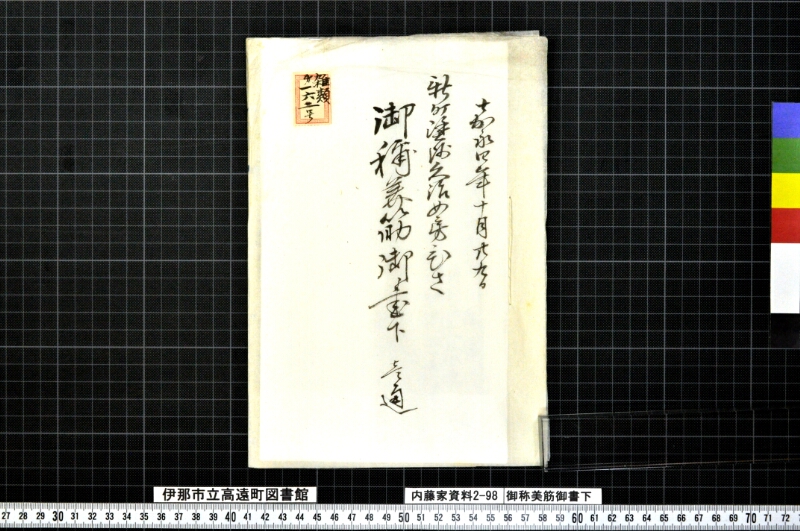 嘉永四年十月廿九日
新町塗師久治女房ひさ
御称美筋御書下
壱通
雑類
第一六二号
伊那市立高遠町図書館
内藤家資料2-98
御称美筋御書下
27 28 29 30 31 32 33 34 35 36 37 38 39 40 41 42 43 44 45 46 47 48 49 50 51 52 53 54 55 56 57 58 59 60 61 62 63 64 65 66 67 68 69 70 71 72